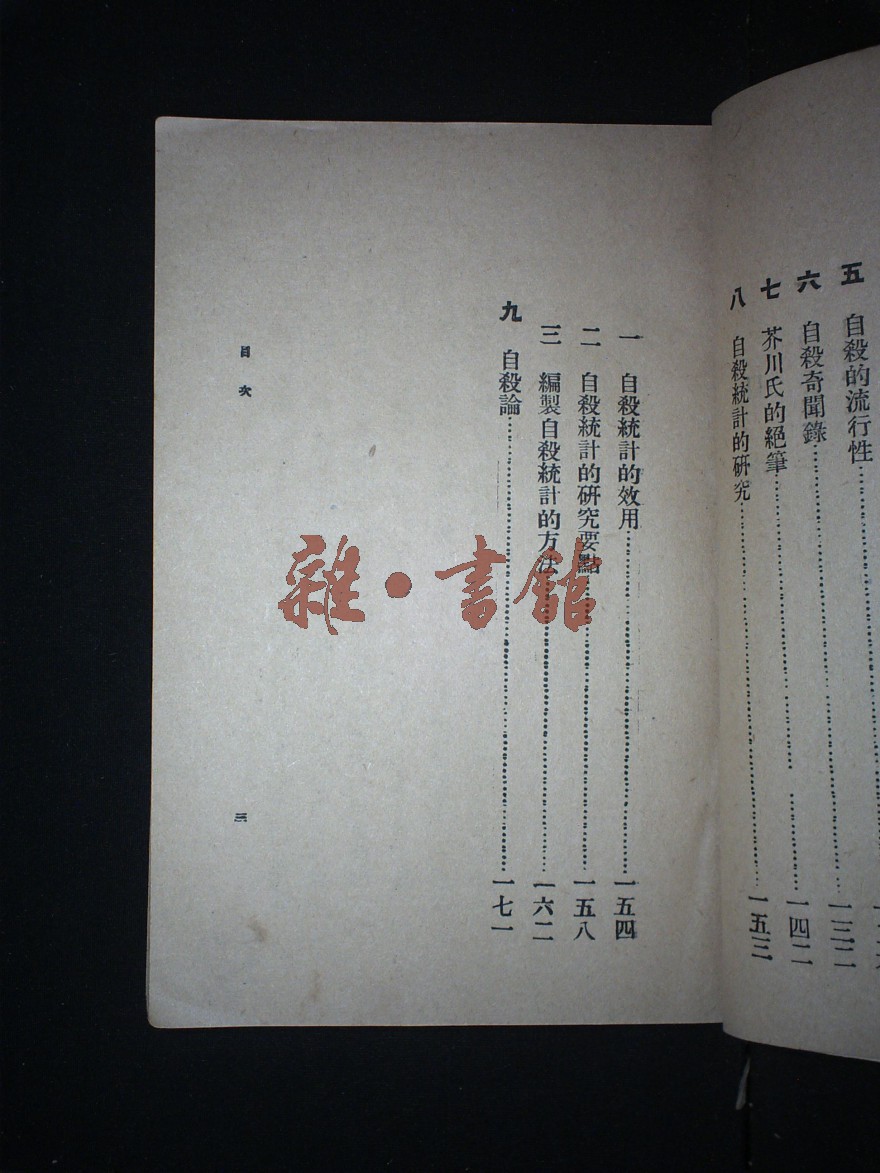 五 自殺的流行性
六 自殺奇聞錄 一三二
七 芥川氏的絕筆 一四二
八 自殺統計的研究 一五三
一 自殺統計的效用 一五四
二 自殺統計的研究要點 一五八
三 編製自殺統計的方法 一六二
九 自殺論 一七一
目次
三
雜·書館